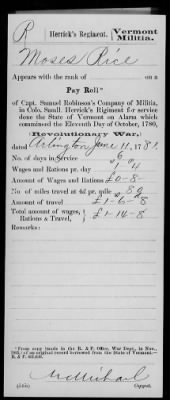 R
Herrick's Regiment.
Vermont
Militia.
Moses Rice
Appears with the rank of on a
Pay Roll*
of Capt. Samuel Robinson's Company of Militia,
in Colo. Saml. Herrick's Regiment for service
done the State of Vermont on Alarm which
commenced the Eleventh Day of October, 1780,
Revolutionary War,
dated Arlington June 11, 1781.
No. of days in Service 6
Wages and Rations pr. day 1 4
Amount of Wages and Rations £0-8-
No. of miles travel at 4d. pr. mile 80
Amount of travel £1-6-8
Total amount of wages,
Rations & Travel, £1-14-8
Remarks:
*From copy made in the R. & P. Office, War Dept., in Nov.,
of an original record borrowed from the State of Vermont.—
R. & P.
McMichael
Copyist.